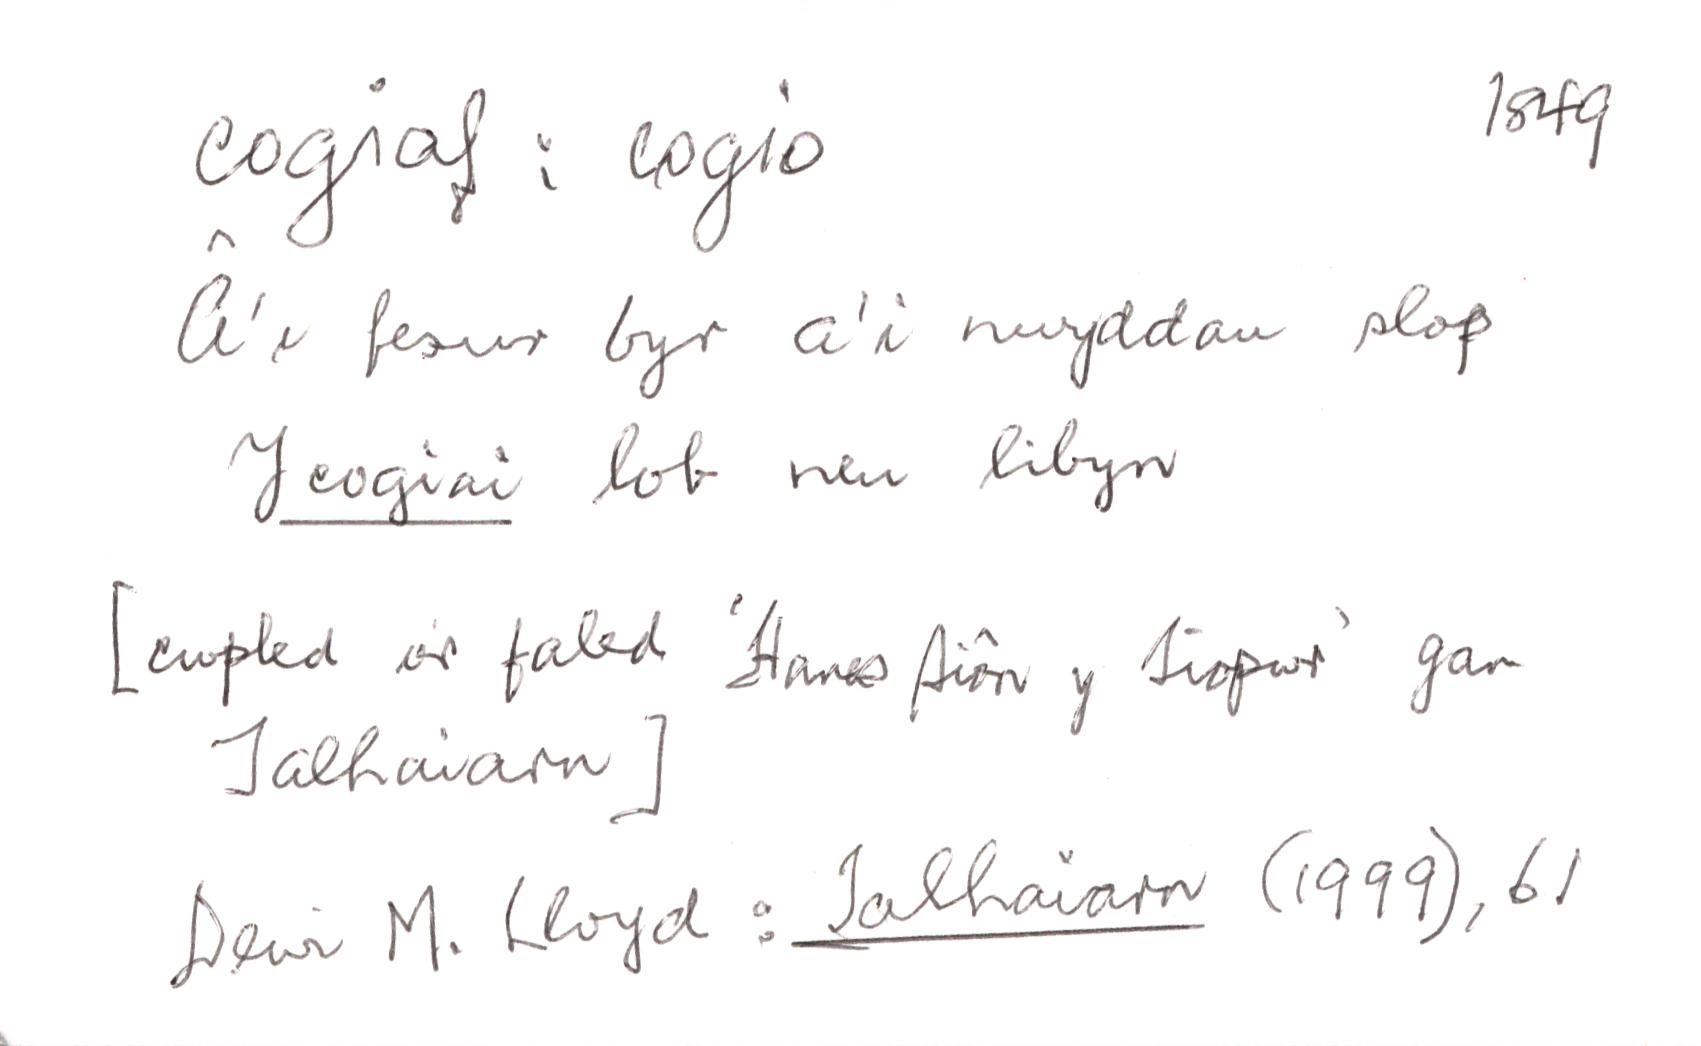 cogiaf : cogio 1849
Â'i fesur byr a'i nwyddau slop
Y cogiai lob neu libyn
[cwpled o'r faled 'Hanes Siôn y Siopwr' gan
Talhaiarn]
Dewi M. Lloyd : Talhaiarn (1999), 61